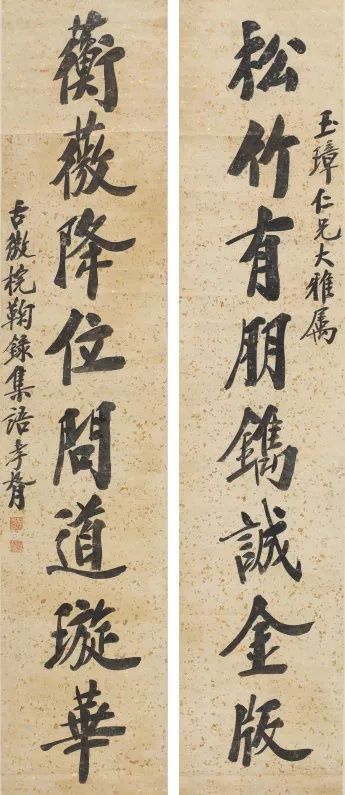 玉璋仁兄大雅属
松竹有朋鐫誠金版
蘅薇降位問道璇華
古微梡鞠錄集語孝胥